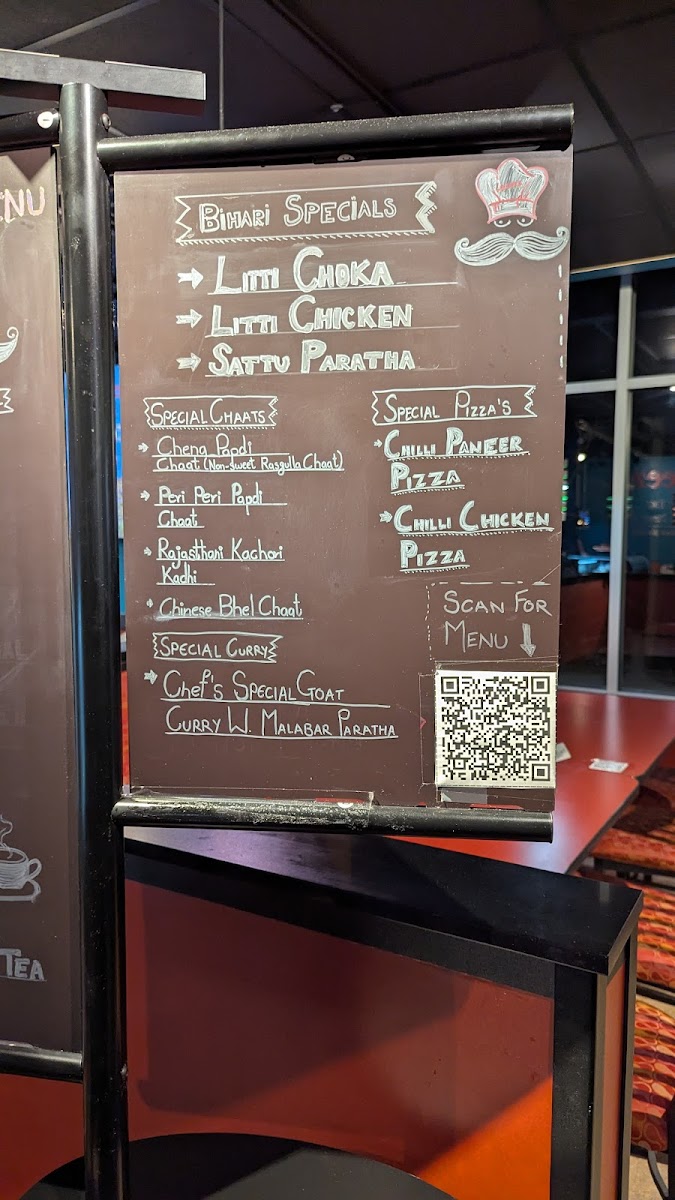 ENU
BIHARI SPECIALS
LITTI CHOKA
LITTI CHICKEN
SATTU PARATHA
SPECIAL CHAATS
Chena Papdi
Chaat (Non-sweet Rasgulla Chaat)
Peri Peri Papdi
Chaat
Rajasthani Kachori
Kadhi
Chinese Bhel Chaat
SPECIAL CURRY
CHEF'S SPECIAL GOAT
CURRY W. MALABAR PARATHA
SPECIAL PIZZA'S
CHILLI PANEER
PIZZA
CHILLI CHICKEN
PIZZA
SCAN FOR
MENU
TEA